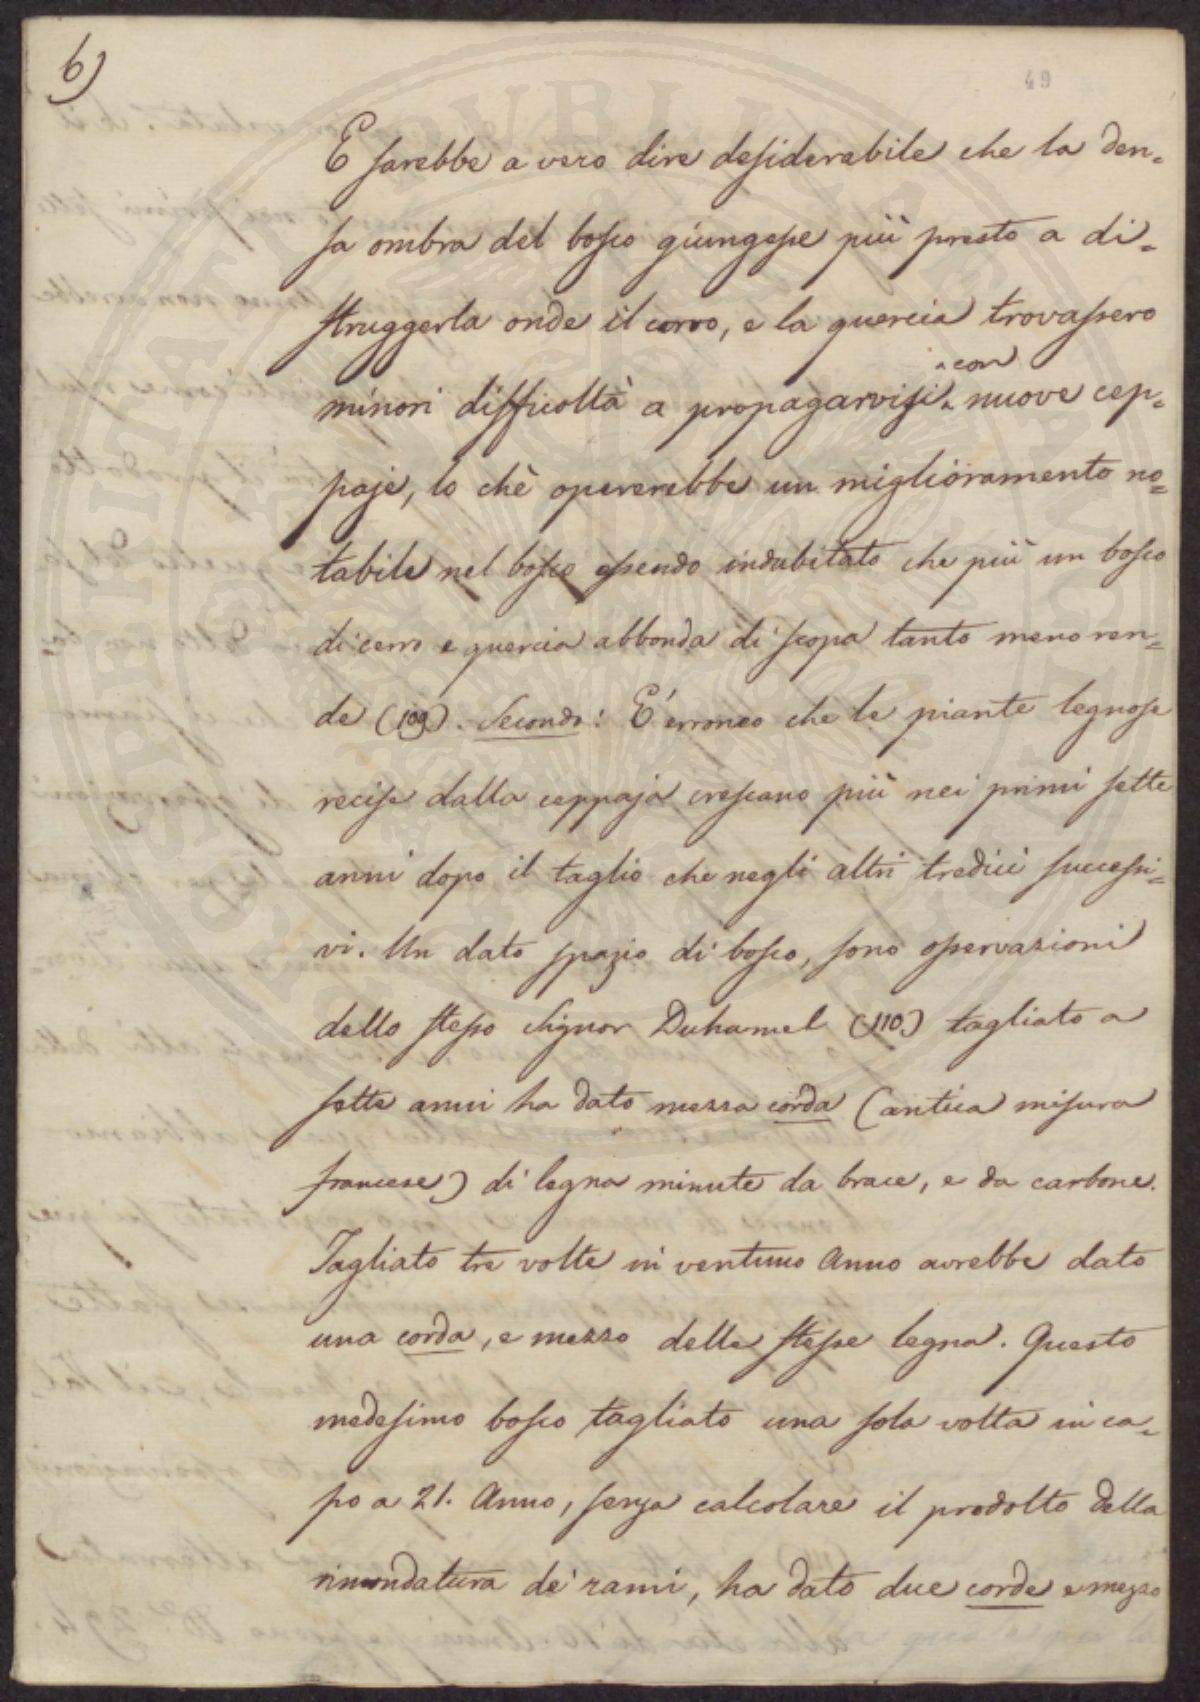 6)
49
E sarebbe a vero dire desiderabile che la den=
sa ombra del bosco giungesse più presto a di=
struggerla onde il cerro, e la quercia trovassero
minori difficoltà a propagarvisi ^con nuove cep=
paje, lo chè opererebbe un miglioramento no=
tabile nel bosco essendo indubitato che più un bosco
di cerro e quercia abbonda di scopa tanto meno ren=
de (109). Secondo: E' erroneo che le piante legnose
recise dalla ceppaja crescano più nei primi sette
anni dopo il taglio che negli altri tredici successi=
vi. Un dato spazio di bosco, sono osservazioni
dello stesso Signor Duhamel (110) tagliato a
sette anni ha dato mezza corda (antica misura
francese) di legna minute da brace, e da carbone.
Tagliato tre volte in ventuno Anno avrebbe dato
una corda, e mezzo delle stesse legna. Questo
medesimo bosco tagliato una sola volta in ca=
po a 21. Anno, senza calcolare il prodotto della
rimondatura de' rami, ha dato due corde e mezzo